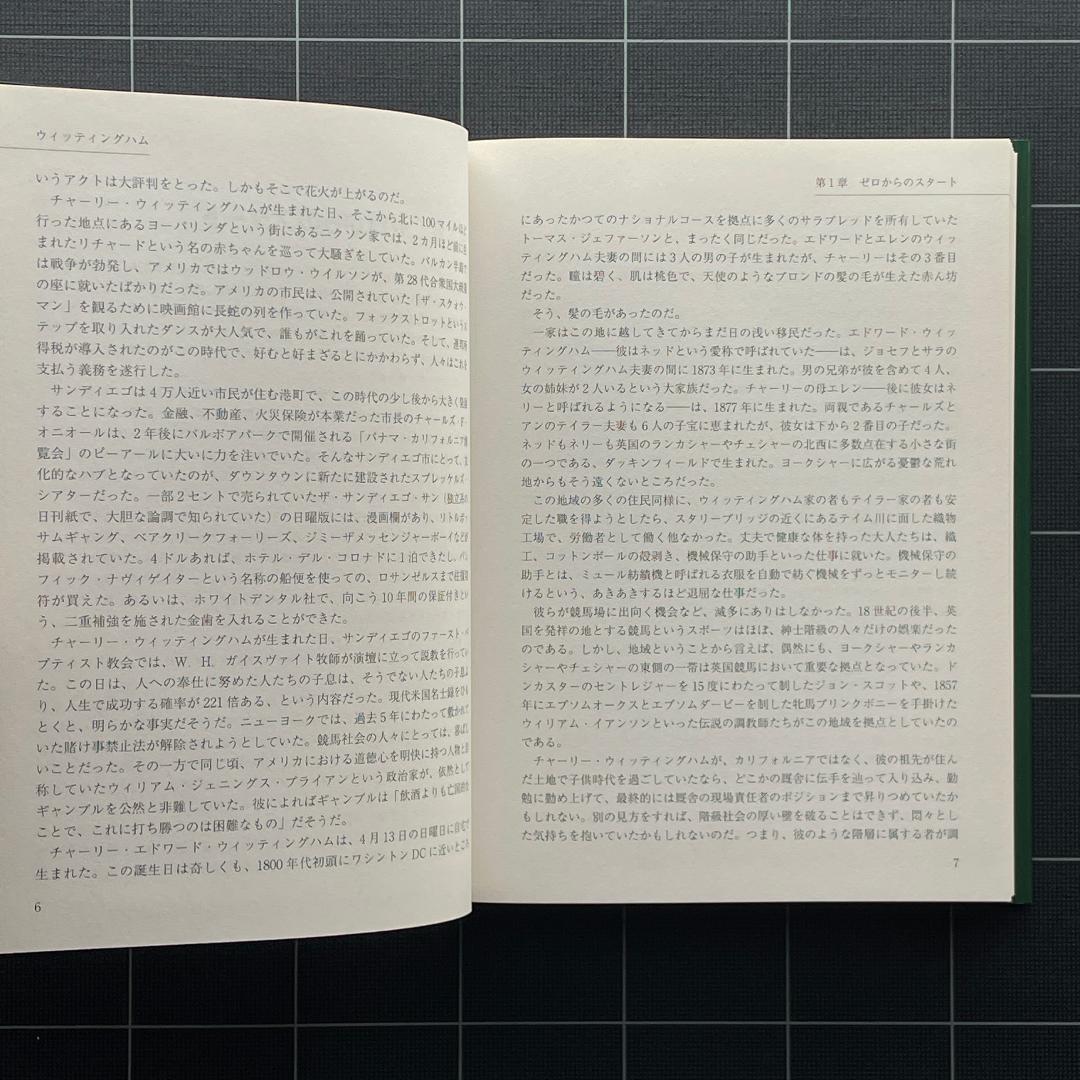 ウィッティングハム
いうアクトは大評判をとった。しかもそこで花火が上がるのだ。
チャーリー・ウィッティングハムが生まれた日、そこから北に100マイルほど
行った地点にあるヨーバリンダという街にあるニクソン家では、2カ月ほど前に生
まれたリチャードという名の赤ちゃんを巡って大騒ぎをしていた。バルカン半島で
は戦争が勃発し、アメリカではウッドロウ・ウイルソンが、第28代合衆国大統領
の座に就いたばかりだった。アメリカの市民は、公開されていた「ザ・スクォウ・
マン」を観るために映画館に長蛇の列を作っていた。フォックストロットという
テップを取り入れたダンスが大人気で、誰もがこれを踊っていた。そして、連邦所
得税が導入されたのがこの時代で、好むと好まざるとにかかわらず、人々はこれを
支払う義務を遂行した。
サンディエゴは4万人近い市民が住む港町で、この時代の少し後から大きく発展
することになった。金融、不動産、火災保険が本業だった市長のチャールズ・F・
オニオールは、2年後にバルボアパークで開催される「パナマ・カリフォルニア博
覧会」のピーアールに大いに力を注いでいた。そんなサンディエゴ市にとって、文
化的なハブとなっていたのが、ダウンタウンに新たに建設されたスプレッケルズ・
シアターだった。一部2セントで売られていたザ・サンディエゴ・サン（独立系の
日刊紙で、大胆な論調で知られていた）の日曜版には、漫画欄があり、リトルボッ
サムギャング、ベアクリークフォーリーズ、ジミーザメッセンジャーボーイなどが
掲載されていた。4ドルあれば、ホテル・デル・コロナドに1泊できたし、パシ
フィック・ナヴィゲイターという名称の船便を使っての、ロサンゼルスまで往復切
符が買えた。あるいは、ホワイトデンタル社で、向こう10年間の保証付きとい
う、二重補強を施された金歯を入れることができた。
チャーリー・ウィッティングハムが生まれた日、サンディエゴのファースト・バ
プティスト教会では、W. H. ガイスヴァイト牧師が演壇に立って説教を行ってい
た。この日は、人への奉仕に努めた人たちの子息は、そうでない人たちの子息よ
り、人生で成功する確率が221倍ある、という内容だった。現代米国名士録をひも
とくと、明らかな事実だそうだ。ニューヨークでは、過去5年にわたって敷かれて
いた賭け事禁止法が解除されようとしていた。競馬社会の人々にとっては、喜ばし
いことだった。その一方で同じ頃、アメリカにおける道徳心を明快に持つ人物と自
称していたウィリアム・ジェニングス・ブライアンという政治家が、依然として
ギャンブルを公然と非難していた。彼によればギャンブルは「飲酒よりも亡国的な
ことで、これに打ち勝つのは困難なもの」だそうだ。
チャーリー・エドワード・ウィッティングハムは、4月13日の日曜日に自宅で
生まれた。この誕生日は奇しくも、1800年代初頭にワシントンDCに近いところ
6
第1章 ゼロからのスタート
にあったかつてのナショナルコースを拠点に多くのサラブレッドを所有していた
トーマス・ジェファーソンと、まったく同じだった。エドワードとエレンのウィッ
ティングハム夫妻の間には3人の男の子が生まれたが、チャーリーはその3番目
だった。瞳は碧く、肌は桃色で、天使のようなブロンドの髪の毛が生えた赤ん坊
だった。
そう、髪の毛があったのだ。
一家はこの地に越してきてからまだ日の浅い移民だった。エドワード・ウィッ
ティングハム――彼はネッドという愛称で呼ばれていた――は、ジョセフとサラの
ウィッティングハム夫妻の間に1873年に生まれた。男の兄弟が彼を含めて4人、
女の姉妹が2人いるという大家族だった。チャーリーの母エレン――後に彼女はネ
リーと呼ばれるようになる――は、1877年に生まれた。両親であるチャールズと
アンのテイラー夫妻も6人の子宝に恵まれたが、彼女は下から2番目の子だった。
ネッドもネリーも英国のランカシャーやチェシャーの北西に多数点在する小さな街
の一つである、ダッキンフィールドで生まれた。ヨークシャーに広がる憂鬱な荒れ
地からもそう遠くないところだった。
この地域の多くの住民同様に、ウィッティングハム家の者もテイラー家の者も安
定した職を得ようとしたら、スタリーブリッジの近くにあるテイム川に面した織物
工場で、労働者として働く他なかった。丈夫で健康な体を持った大人たちは、織
工、コットンボールの殻剥き、機械保守の助手といった仕事に就いた。機械保守の
助手とは、ミュール紡績機と呼ばれる衣服を自動で紡ぐ機械をずっとモニターし続
けるという、あきあきするほど退屈な仕事だった。
彼らが競馬場に出向く機会など、滅多にありはしなかった。18世紀の後半、英
国を発祥の地とする競馬というスポーツはほぼ、紳士階級の人々だけの娯楽だった
のである。しかし、地域ということから言えば、偶然にも、ヨークシャーやランカ
シャーやチェシャーの東側の一帯は英国競馬において重要な拠点となっていた。ド
ンカスターのセントレジャーを15度にわたって制したジョン・スコットや、1857
年にエプソムオークスとエプソムダービーを制した牝馬ブリンクボニーを手掛けた
ウィリアム・イアンソンといった伝説の調教師たちがこの地域を拠点としていたの
である。
チャーリー・ウィッティングハムが、カリフォルニアではなく、彼の祖先が住ん
だ土地で子供時代を過ごしていたなら、どこかの厩舎に伝手を辿って入り込み、勤
勉に勤め上げて、最終的には厩舎の現場責任者のポジションまで昇りつめていたか
もしれない。別の見方をすれば、階級社会の厚い壁を破ることはできず、悶々とし
た気持ちを抱いていたかもしれないのだ。つまり、彼のような階層に属する者が調
7